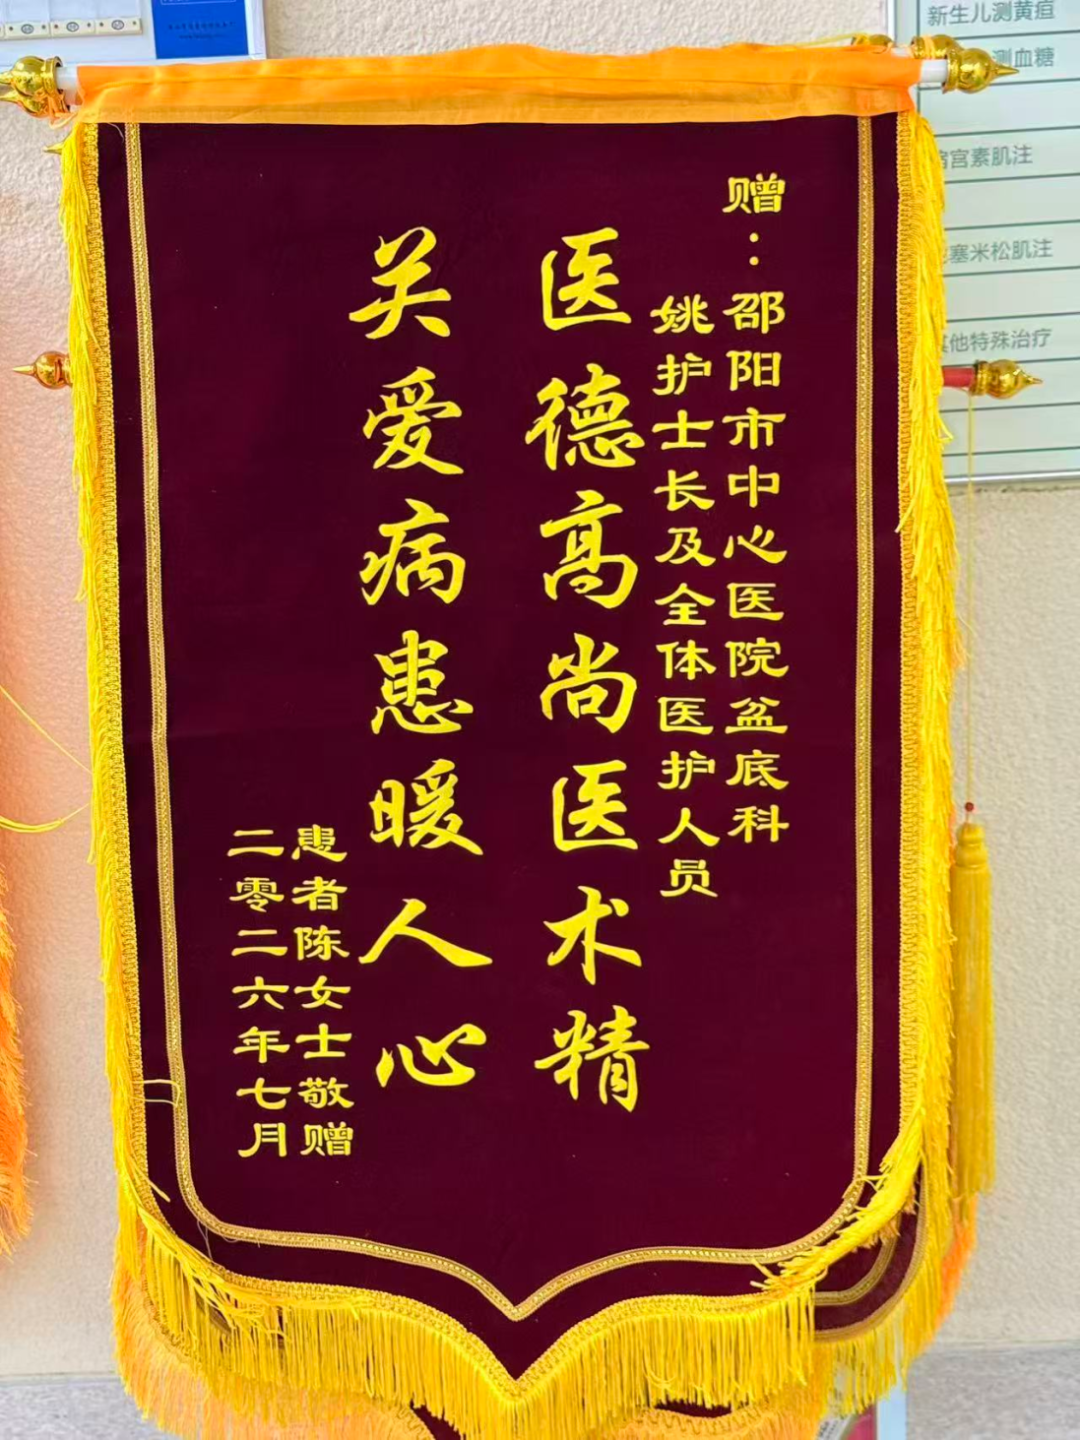 赠：邵阳市中心医院盆底科
姚护士长及全体医护人员
医德高尚医术精
关爱病患暖人心
患者陈女士敬赠
二零二六年七月
新生儿测黄疸
测血糖
宫素肌注
塞米松肌注
其他特殊治疗